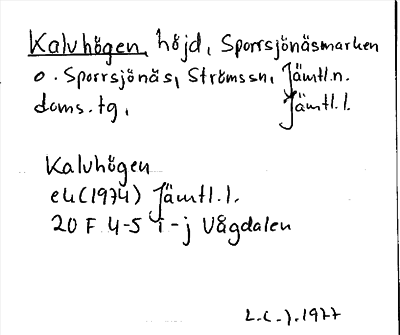 Kalvhögen, höjd, Sporrsjönäsmarken
o. Sporrsjönäs, Strömssn, Jämtl.n.
doms.tg, Jämtl.l.
Kalvhögen
ek(1974) Jämtl.l.
20 F 4-5 i-j Vågdalen
1977